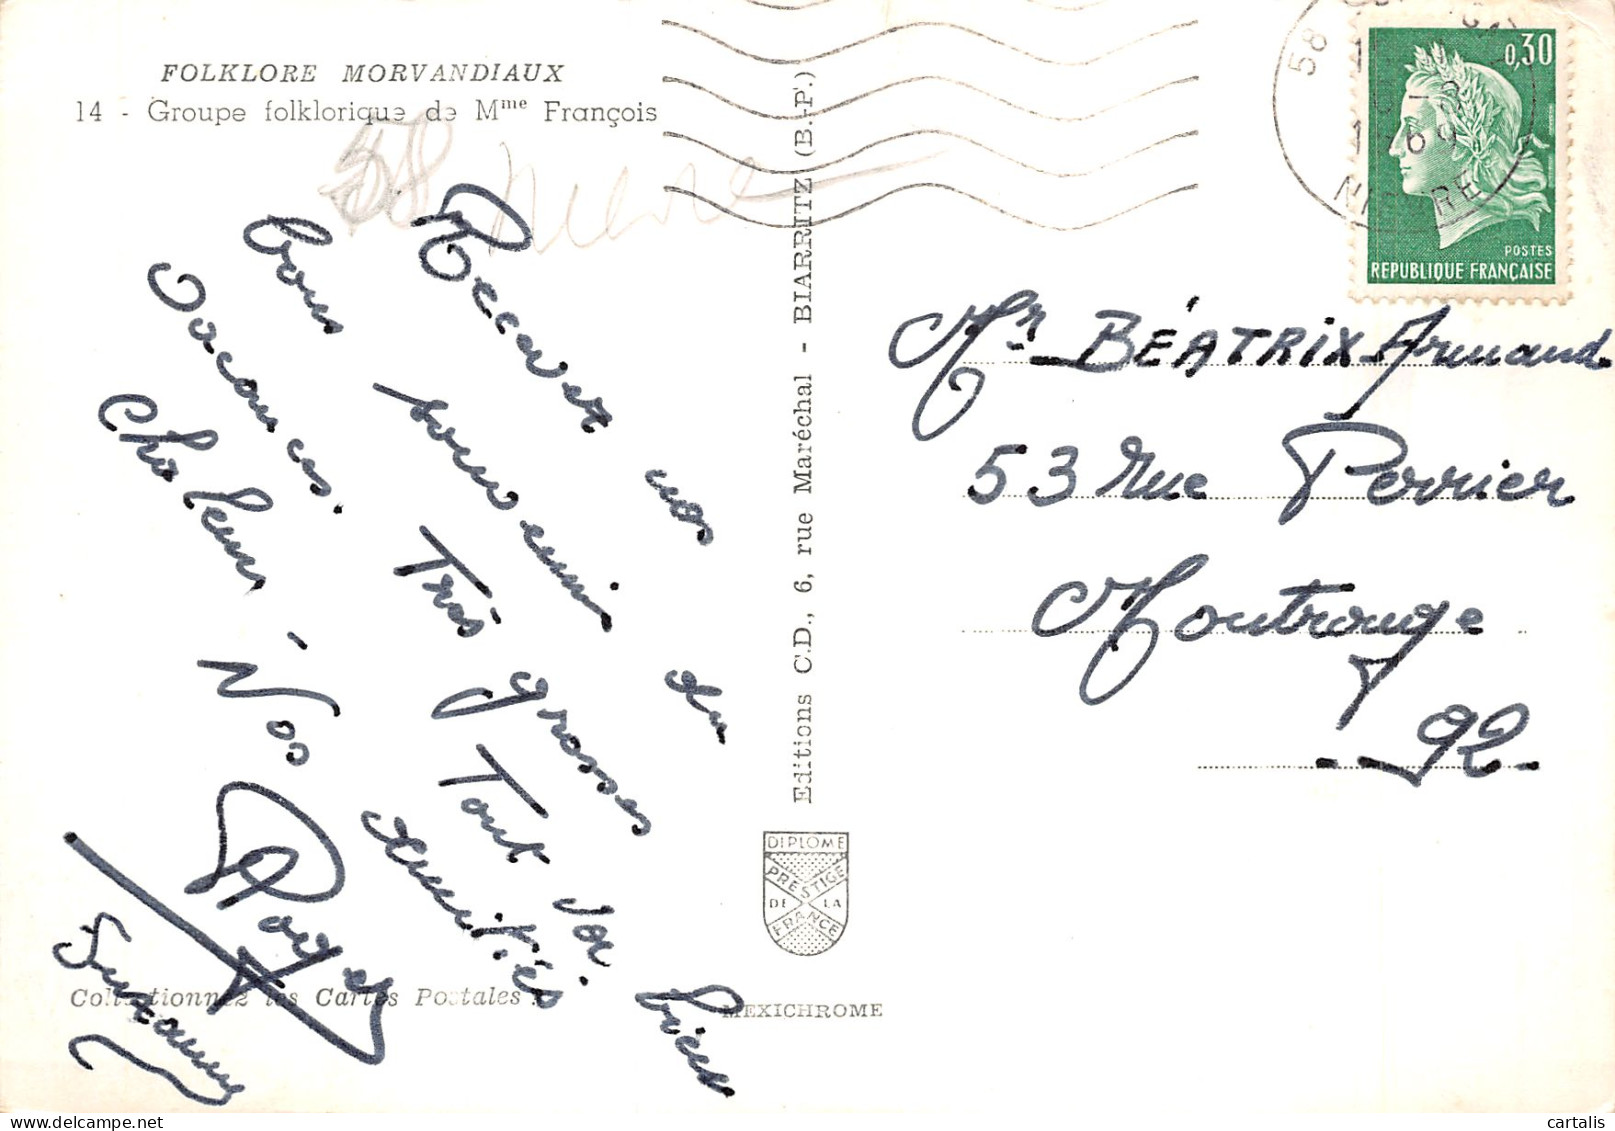 FOLKLORE MORVANDIAUX
14 - Groupe folklorique de Mme François
58 Nièvre
Recevez nos
bons souvenirs du
vacances. Très grosses
chaleurs. Tout va bien
Nos amitiés
Roger
Suzanne
Collectionnez les Cartes Postales !
Editions C.D., 6, rue Maréchal - BIARRITZ (B.-P.)
DIPLOME
PRESTIGE
DE LA
FRANCE
MEXICHROME
58
69
NIEVRE
0,30
POSTES
REPUBLIQUE FRANÇAISE
Mr BÉATRIX Armand
53 Rue Perrier
Montrouge
- 92 -
cartalis